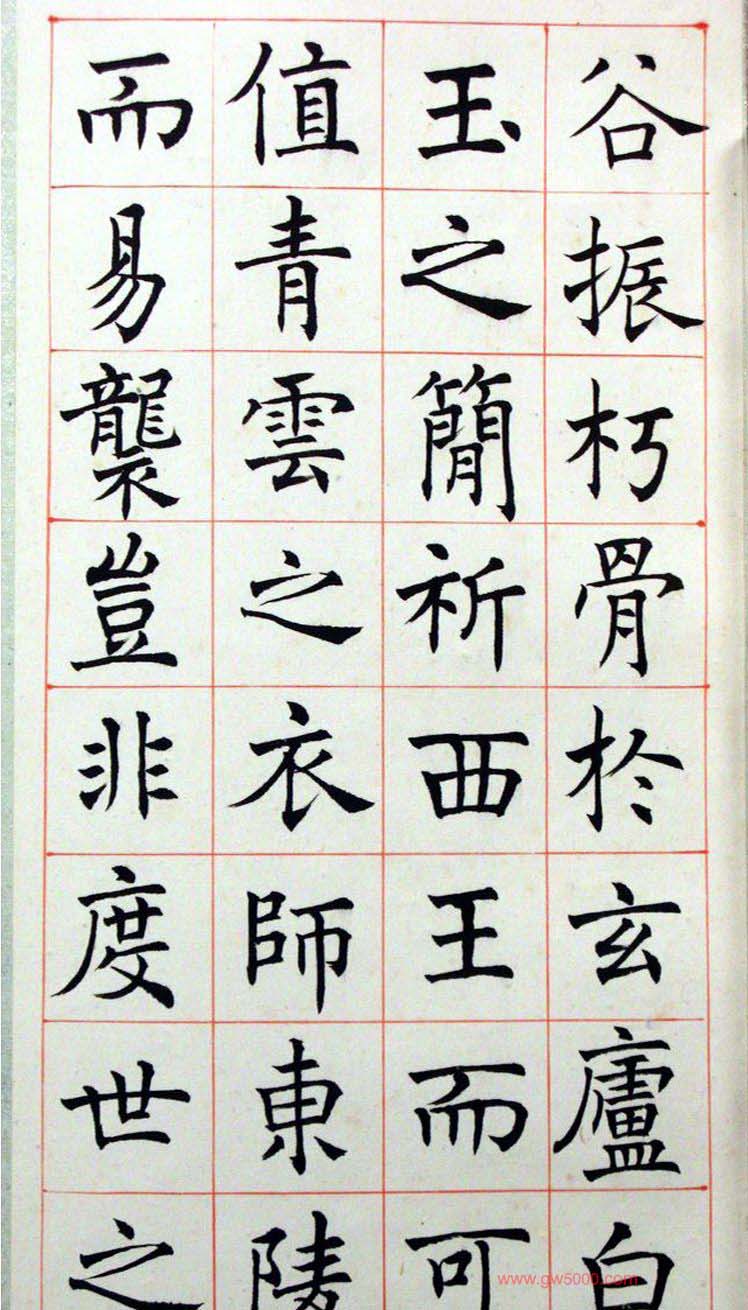 谷振朽骨於玄廬白
玉之簡祈西王而可
值青雲之衣師東陵
而易襲豈非度世之
www.gw5000.com